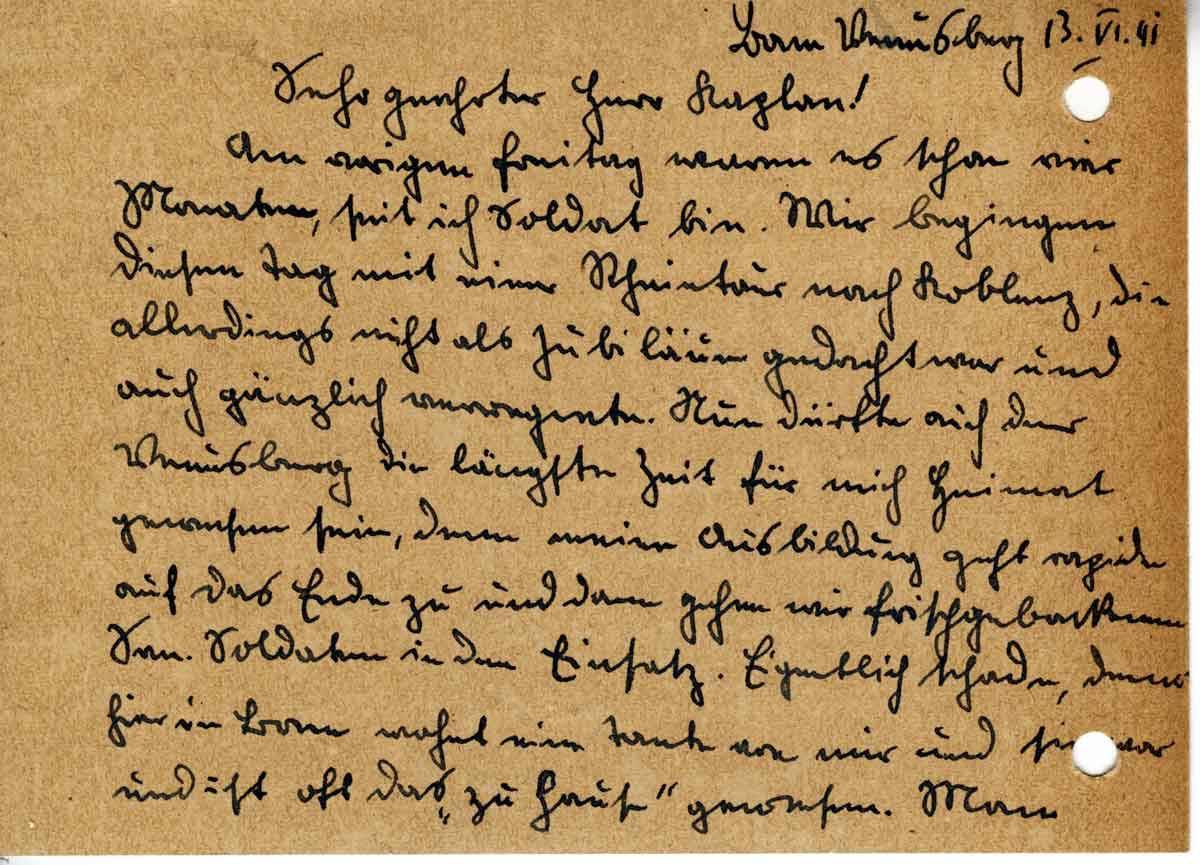 Bonn Venusberg 13. VI. 41
Sehr geehrter Herr Kaplan!
Am vorigen Freitag waren es schon vier
Monaten, seit ich Soldat bin. Wir begingen
diesen Tag mit einer Rheintour nach Koblenz, die
allerdings nicht als Jubiläum gedacht war und
auch gänzlich verregnete. Nun dürfte auch der
Venusberg die längste Zeit für mich Heimat
gewesen sein, denn meine Ausbildung geht rapide
auf das Ende zu und dann gehen wir frischgebackenen
San. Soldaten in den Einsatz. Eigentlich schade, denn
hier in Bonn wohnt eine Tante von mir und sie war
und ist oft das „zu Hause" gewesen. Man